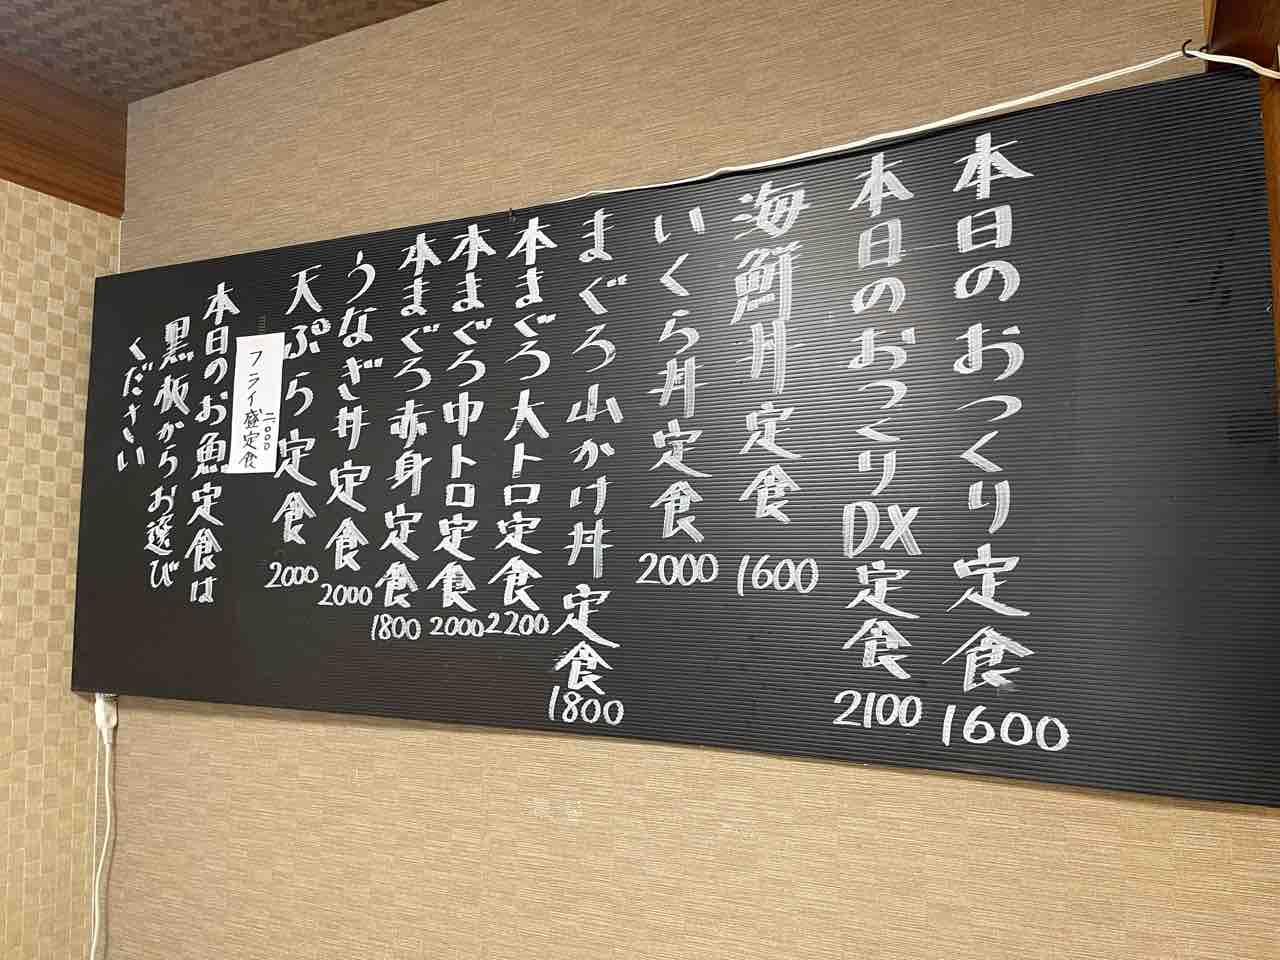 本日のおつくり定食 1600
本日のおつくりDX定食 2100
海鮮丼定食 1600
いくら丼定食 2000
まぐろ山かけ丼定食 1800
本まぐろ大トロ定食 2200
本まぐろ中トロ定食 2000
本まぐろ赤身定食 1800
うなぎ丼定食 2000
天ぷら定食 2000
フライ盛定食
二〇〇〇
本日のお魚定食は
黒板からお選び
ください